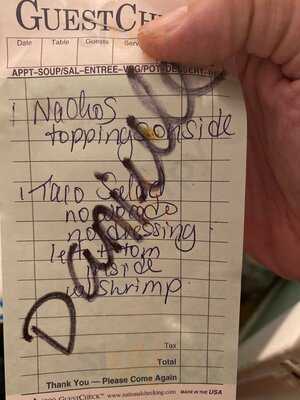 GUESTCHECK
Date Table Guests
APPT-SOUP/SAL-ENTREE-VEG/POT-DESSERT-BEV
1 Nachos
toppings on side
1 Taco Salad
no avocado
no dressing
let + tom
inside
w/ Shrimp
Danielle
Tax
Total
Thank You — Please Come Again
GUESTCHECK™ www.nationalchecking.com MADE IN THE USA